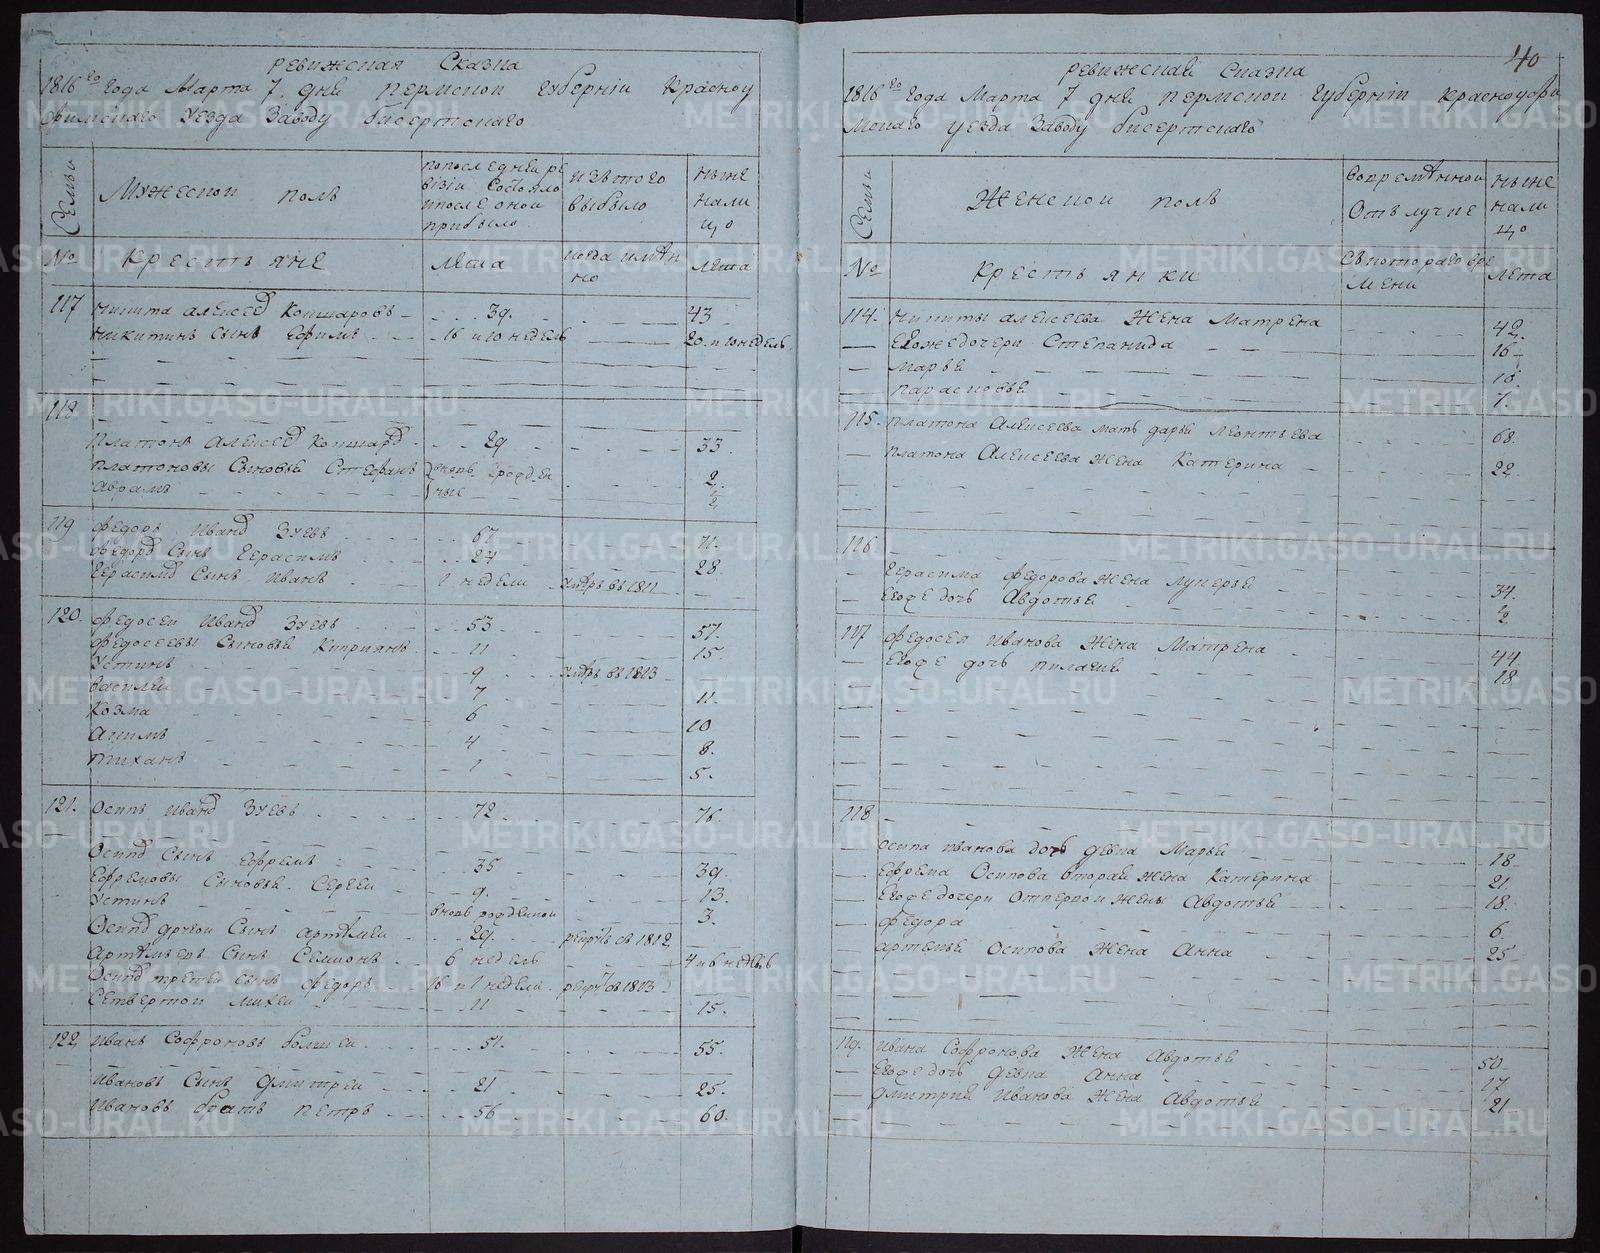 Ревижская Сказка
1816го Года Марта 7 дня Пермской Губернїи Красноу
фимскаго Уезда Заводу бисертскаго
Семьи
Мужеской полъ
попоследней ре
визiи Состояло
ипосле оной
прибыло
изътого
выбыло
ныне
нали
цо
№
Крестьяне
Лета
когда имянно
Лета
117 никита алексеев Кошкаровъ 39. 43
никитинъ Сынъ Ефимъ 16 и 10 недель 20. и 10 недель.
118
Платонъ алексеев 29 33.
платоновы Сыновья Стефанъ вновь рожден 2.
аврамъ ные 1/2
119 Федоръ Иванов Зуевъ 67. 71.
Федоров Сынъ Герасимъ 24 28
Герасимов Сынъ Иванъ 1 недели умеръ въ 1811
120. Федосей Иванов Зуевъ 53 57.
Федосеевы Сыновья Киприянъ 11 15.
Устинъ 9 умеръ въ 1813
василей 7 11.
Козма 6 10
Акимъ 4 8.
1 5.
121. Осипъ Иванов Зуевъ 72 76.
Осипов Сынъ Ефремъ 35 39.
Ефремовы Сыновья Сергей 9. 13.
Устинъ вновь рожденой 3.
Осипов другой Сынъ артамей 29. рекрутъ въ 1812
Сынъ Семионъ 6 недель 4 и 6 недель
Осипов третей Сынъ Федоръ 16 и 1 недели рекрутъ въ 1813
Сетвертой Михей 11 15.
122 Иванъ Софроновъ болшей 51. 55.
Ивановъ Сынъ Дмитрей 21 25.
Ивановъ братъ Петръ 56 60.
40
Ревижская Сказка
1816го Года Марта 7 дня Пермской Губернїи Красноуфи
мскаго уезда Заводу бисертскаго
Семьи
Женской полъ
вовремянной
Отълучке
ныне
нали
цо
№
крестьянки
Съкотораго вре
мени
Лета
114. никиты алексеева Жена Матрена 42.
Егожедочери Степанида 16
Марья 10.
Парасковья 7.
115. Платона Алексеева мать дарья Леонтьева 68.
платона Алексеева жена Катерина 22.
116.
Герасима Федорова жена Лукерья 34.
Егоже дочь Авдотья 1/2
117 Федосея Иванова Жена Матрена 44.
Егоже дочь пилагия 18
118
Осипа иванова дочь девка Марья 18
Ефрема Осипова вторая жена Катерина 21
Егоже дочери Отпервой жены Авдотья 18.
Федора 6.
артемья Осипова жена Анна 25
119. Ивана Софронова жена Авдотья 50.
Егоже дочь девка Анна 17
Дмитрия Иванова жена Авдотья 21
METRIKI.GASO-URAL.RU